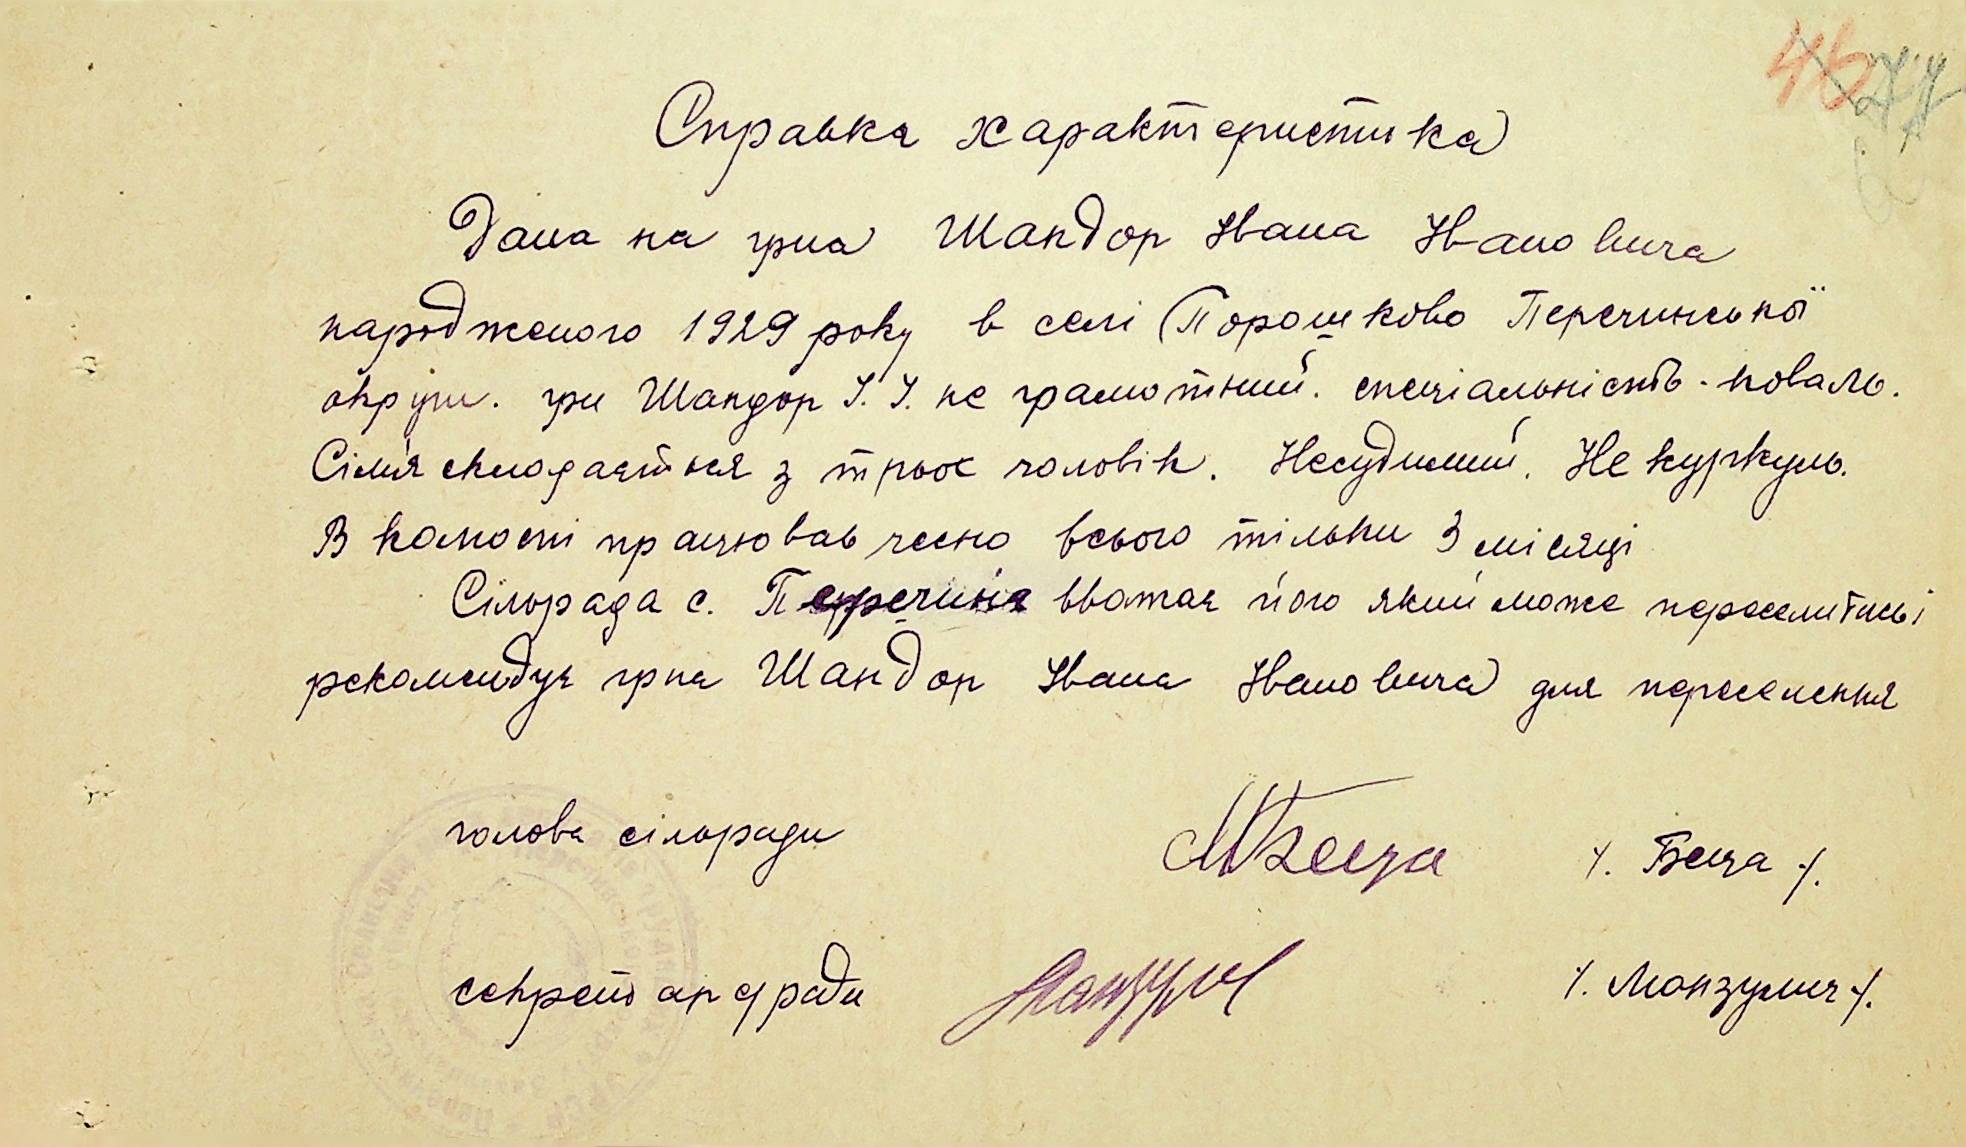 Справка характеристика
Дана на грна Шандор Івана Івановича
народженого 1929 року в селі Порошково Перечинської
округи. грн Шандор І. І. не грамотний. спеціальність - коваль.
Сімя складається з трьох чоловік. Несудимий. Не куркуль.
В колгоспі працював чесно всього тільки 3 місяці
Сільрада с. Перечина вважає його який може переселитись і
рекомендує грна Шандор Івана Івановича для переселення
голова сільради /. Беца /.
секретар с/ради /. Манзулич /.